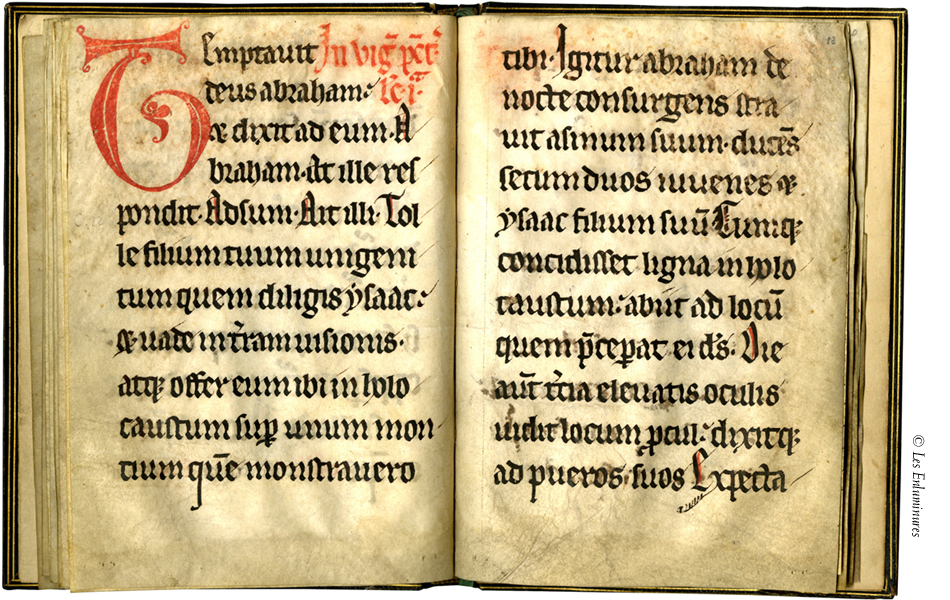 Temptavit In vig̃ pẽt̃
deus abraham· lc̃ i·
⁊ dixit ad eum· A
braham· At ille res
pondit· Adsum· Ait illi· Tol
le filium tuum unigeni
tum quem diligis ysaac·
⁊ uade in t̃ram uisionis·
atq; offer eum ibi in holo
caustum sup̱ unum mon
tium quẽ monstravero
tibi· Igitur abraham de
nocte consurgens stra
uit asinum suum· ducẽs
secum duos iuvenes ⁊
ysaac filium suũ Cumq;
concidisset ligna in holo
caustum· abiit ad locũ
quem p̃ceperat ei d̃s· Die
aũt t̃cia eleuatis oculis
uidit locum p̱cul· dixitq;
ad pueros suos Expecta
© Les Enluminures